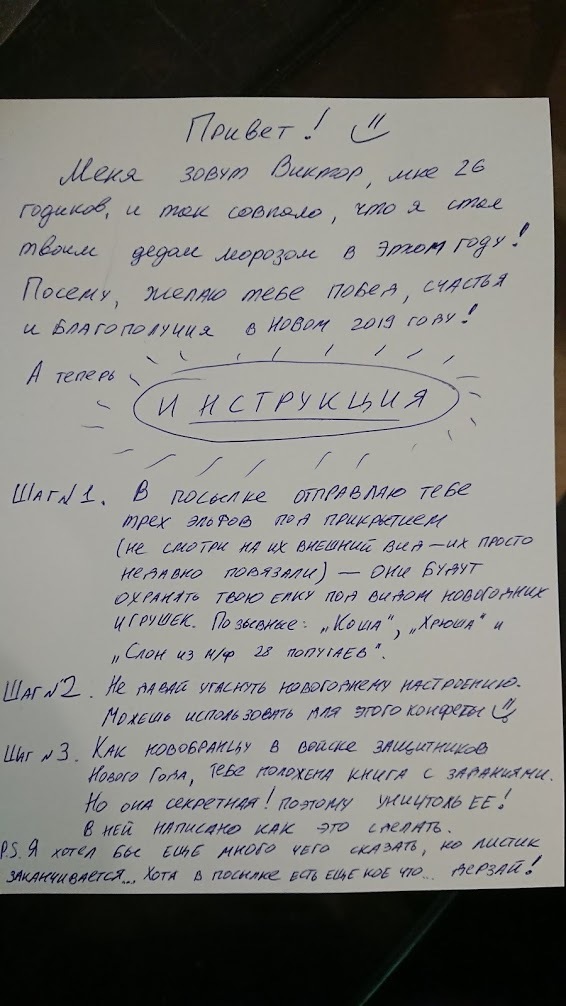 Привет!
Меня зовут Виктор, мне 26
годиков, и так совпало, что я стал
твоим дедом морозом в этом году!
Посему, желаю тебе побед, счастья
и благополучия в новом 2019 году!
А теперь
ИНСТРУКЦИЯ
Шаг №1. В посылке отправляю тебе
трех эльфов под прикрытием
(не смотри на их внешний вид – их просто
недавно повязали) – они будут
охранять твою елку под видом новогодних
игрушек. Позывные: „Коша", „Хрюша" и
„Слон из м/ф 28 попугаев".
Шаг №2. Не давай угаснуть новогоднему настроению.
Можешь использовать для этого конфеты
Шаг №3. Как новобранцу в войске защитников
Нового Года, тебе положена книга с заданиями.
Но она секретная! Поэтому уничтожь ее!
В ней написано как это сделать.
P.S. Я хотел бы еще много чего сказать, но листик
заканчивается... Хотя в посылке есть еще кое что... Дерзай!